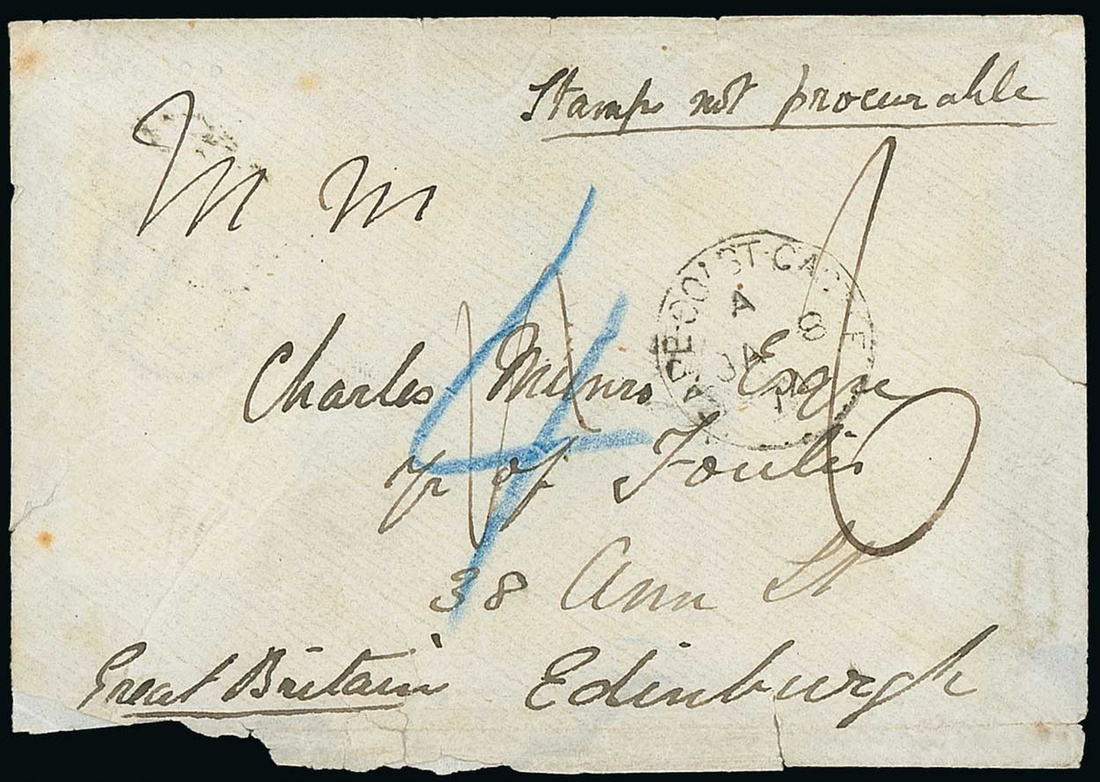 Stamps not procurable
M M
CAPE·COAST·CASTLE
A
JA 8
4
Charles Munro Esqre
of Foulis
38 Ann St
Great Britain Edinburgh